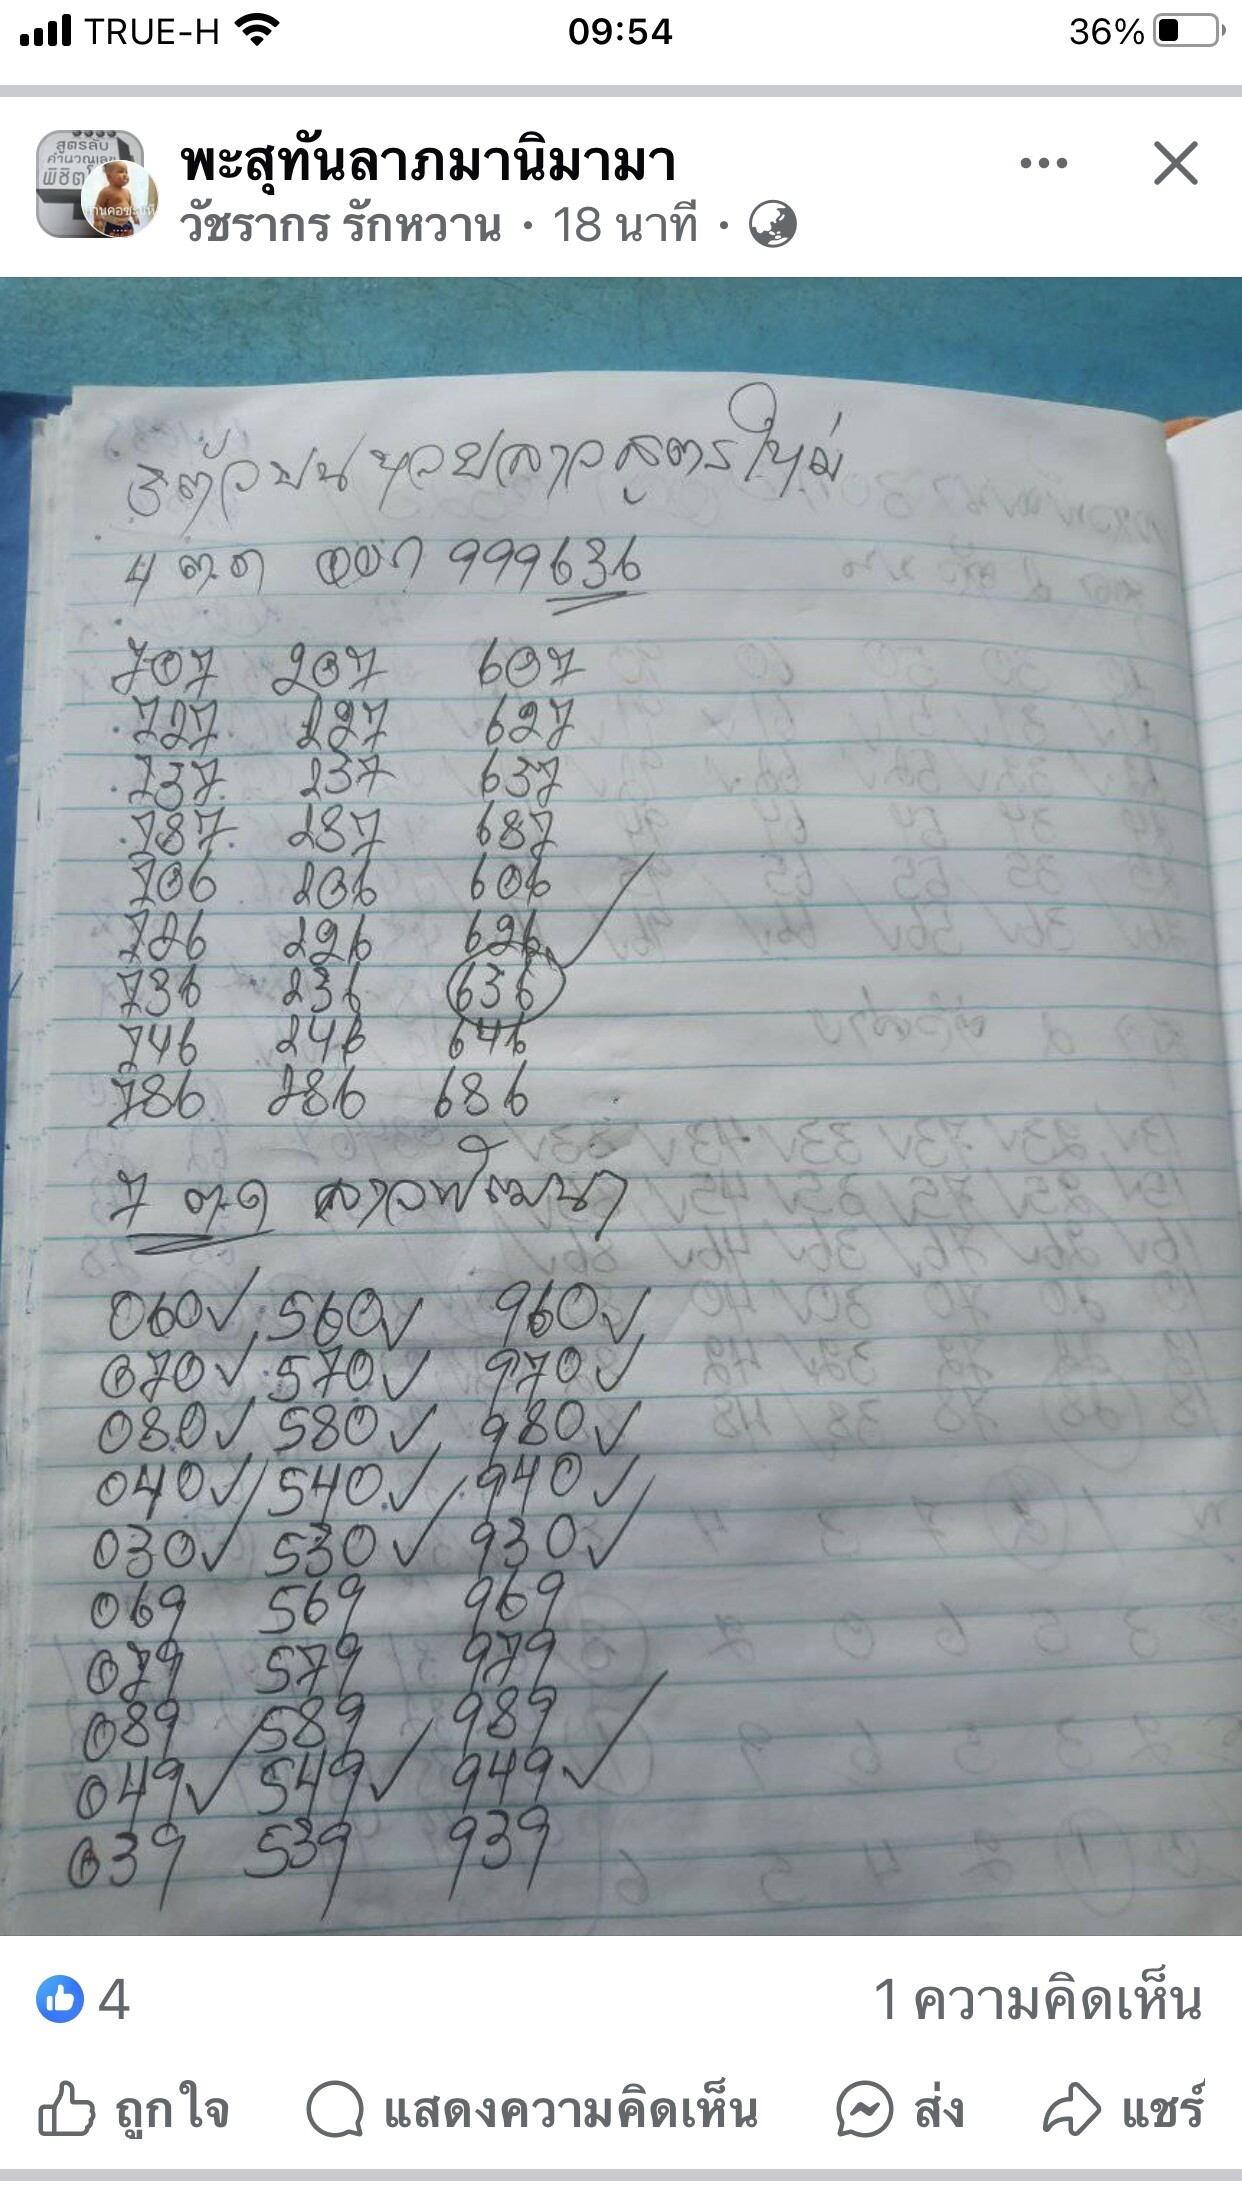 TRUE-H 09:54 36%
พะสุทันลาภมานิมามา
วัชรากร รักหวาน · 18 นาที ·
สูตรลับ
คำนวณเลข
3 ตัวบน หวยลาวสูตรใหม่
4 ต.ค ออก 999636
707 207 607
727 227 627
737 237 637
787 287 687
706 206 606
726 226 626
736 236 636
746 246 646
786 286 686
7 ต.ค ลาวพัฒนา
060✓ 560✓ 960✓
070✓ 570✓ 970✓
080✓ 580✓ 980✓
040✓ 540✓ 940✓
030✓ 530✓ 930✓
069 569 969
079 579 979
089 589 989
049✓ 549✓ 949✓
039 539 939
4 1 ความคิดเห็น
ถูกใจ แสดงความคิดเห็น ส่ง แชร์